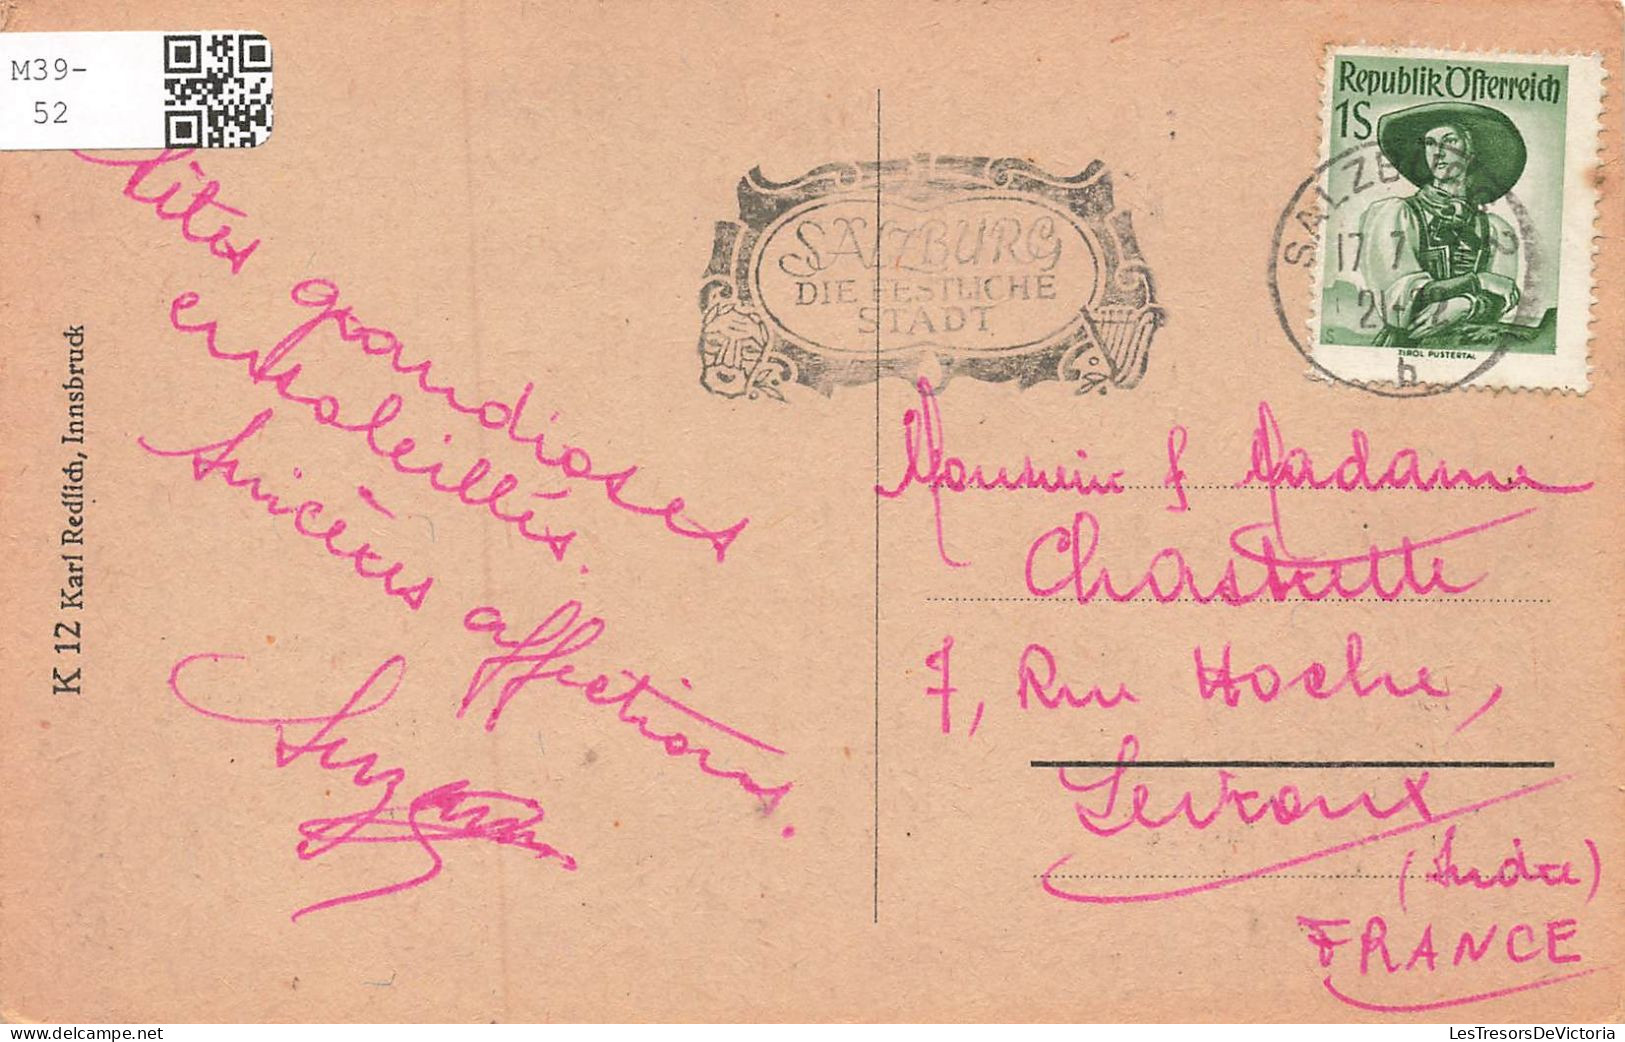 M39-
52
Sites grandioses
ensoleillés.
Sincères affections.
Suzanne
K 12 Karl Redlich, Innsbruck
SALZBURG
DIE FESTLICHE
STADT
Republik Österreich
1S
SALZBURG 2
17 7
21-22
b
TIROL PUSTERTAL
Monsieur & Madame
Chastrette
7, Rue Hoche,
Levroux
(Indre)
FRANCE
LesTresorsDeVictoria